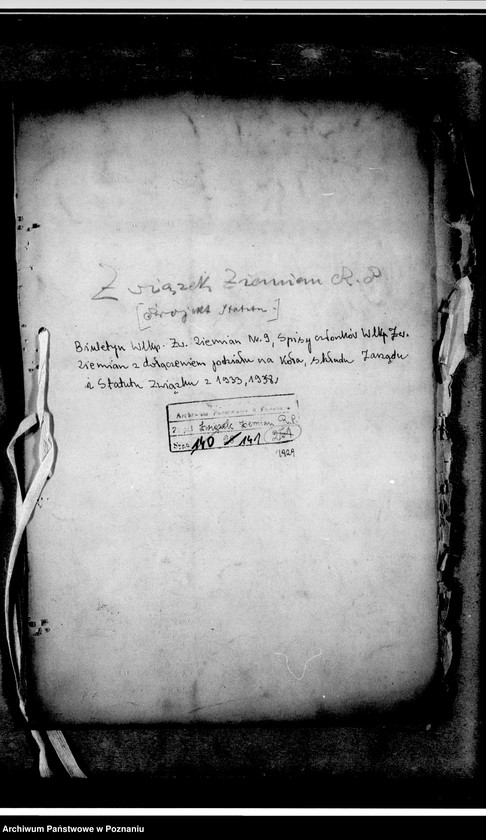 Związek Ziemian R.P
[Projekt Statutu.]
Biuletyn Wlkp. Zw. Ziemian Nr. 9, Spisy członków Wlkp Zw.
Ziemian z dołączeniem podziału na Koła, składu Zarządu
i Statutu Związku z 1933, 1938,
Archiwum Państwowe w Poznaniu
Zespół Związek Ziemian R.P.
140 141
1929
Archiwum Państwowe w Poznaniu